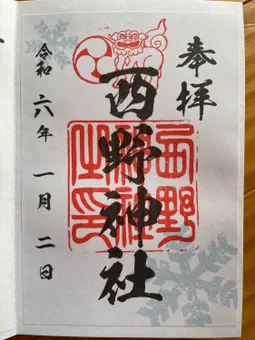 奉拝
西野神社
西野
神社
之印
令和六年一月二日